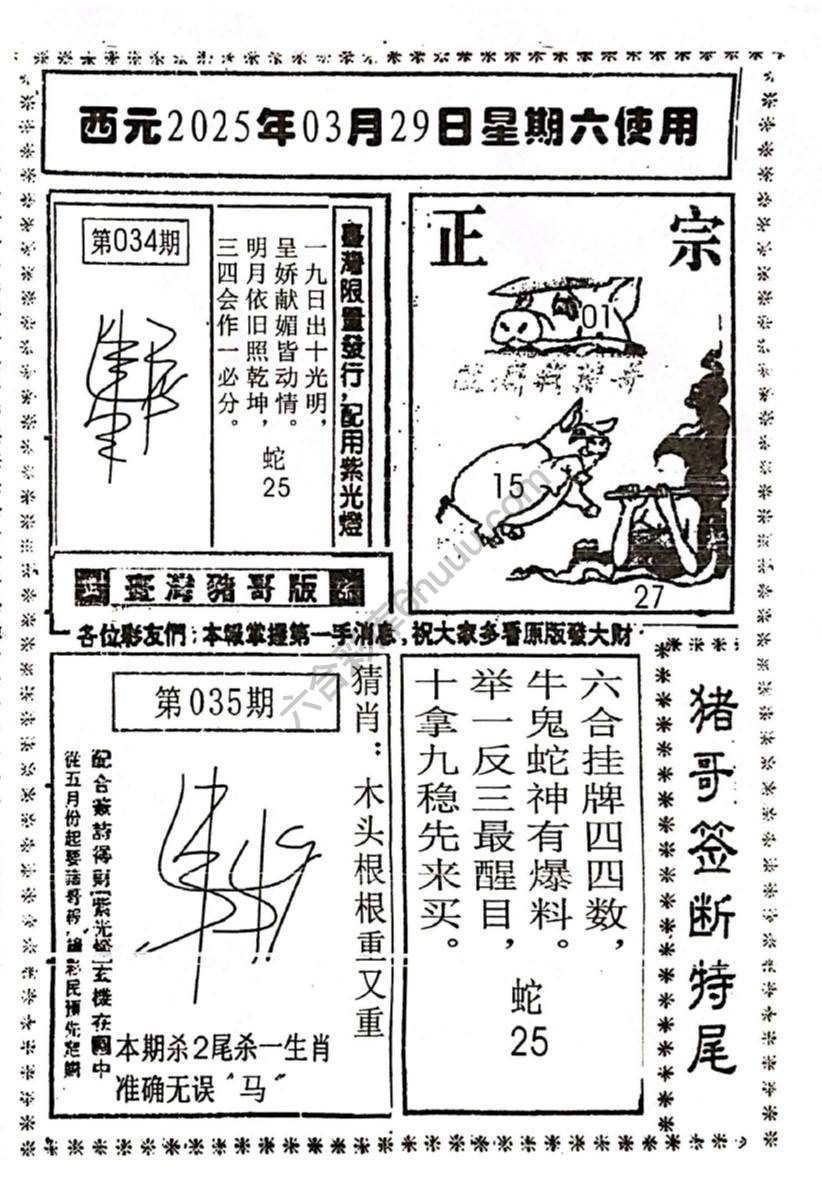 西元2025年03月29日星期六使用
第034期
臺灣限量發行,配用紫光燈
一九日出十光明,
呈娇献媚皆动情。
明月依旧照乾坤,
三四会作一必分。
蛇
25
正宗
01
15
27
臺灣豬哥版
各位彩友們:本報掌握第一手消息,祝大家多看原版發大財
第035期
猜肖:木头根根重又重
配合簽詩得財紫光燈玄機在圖中
從五月份起要諸哥報
本期杀2尾杀一生肖
准确无误“马”
六合挂牌四四数,
牛鬼蛇神有爆料。
举一反三最醒目,
十拿九稳先来买。
蛇
25
猪哥签断特尾
六合彩库6huuu.com